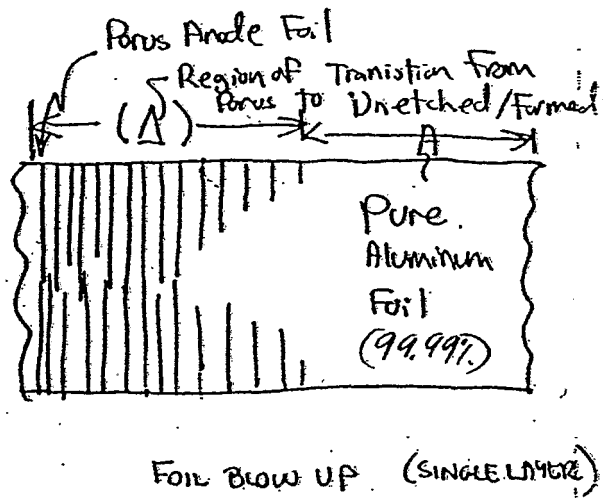 Porus Anode Foil
(Δ) Region of Transtion From
Porus to Unetched/Formed
A
Pure
Aluminum
Foil
(99.99%)
FOIL BLOW UP (SINGLE LAYER)